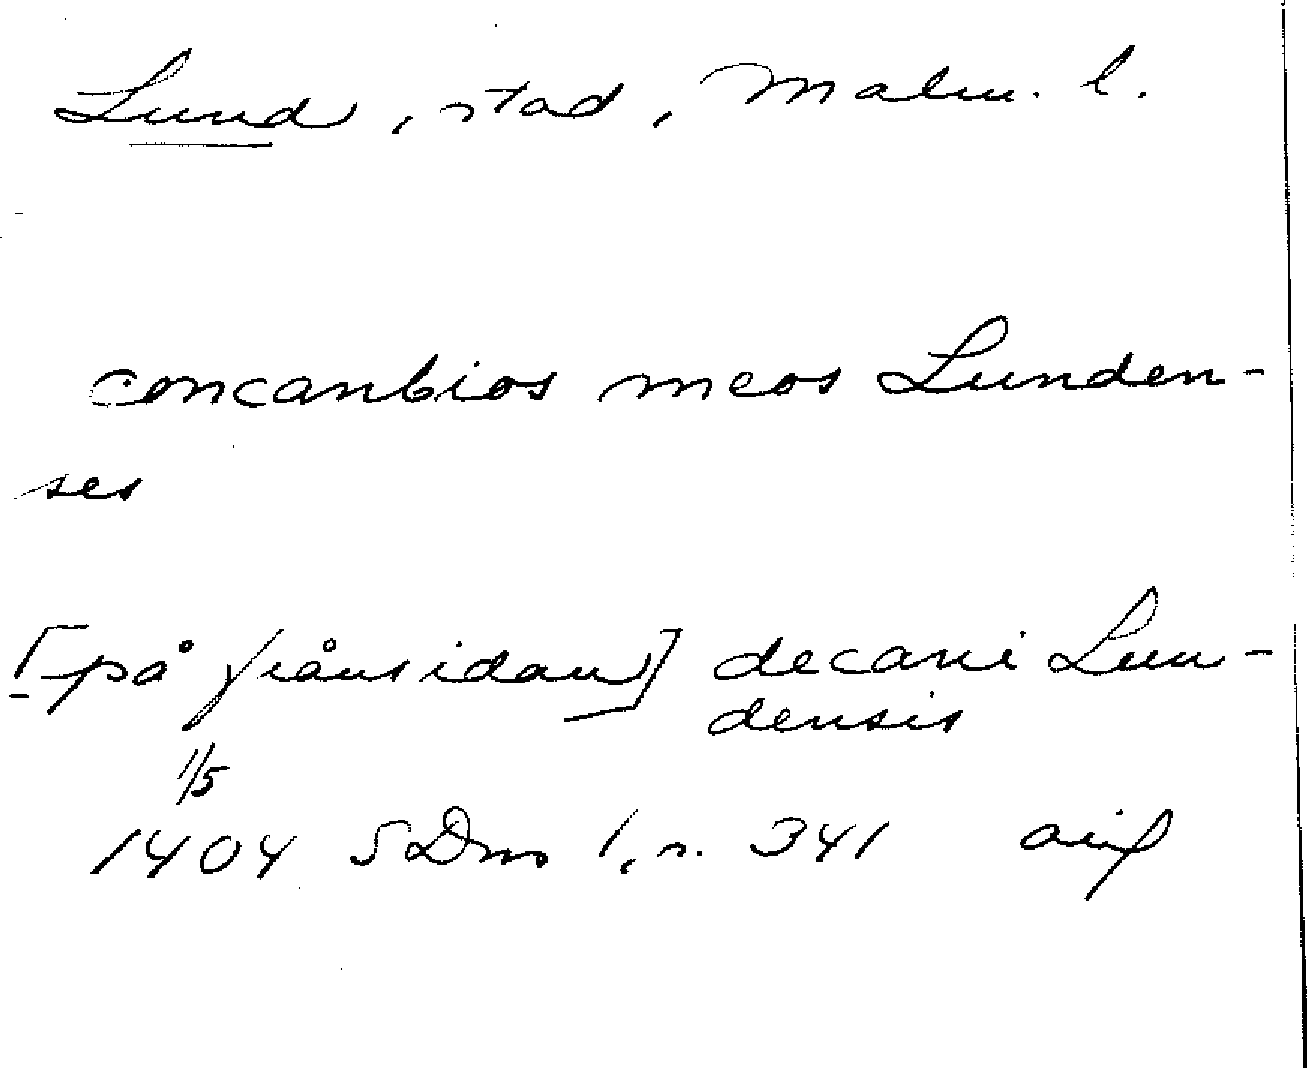 Lund, stad, Malm. l.
concanbios meos Lunden-
ses
[på frånsidan] decani Lun-
densis
1/5
1404 SDns 1, s. 341